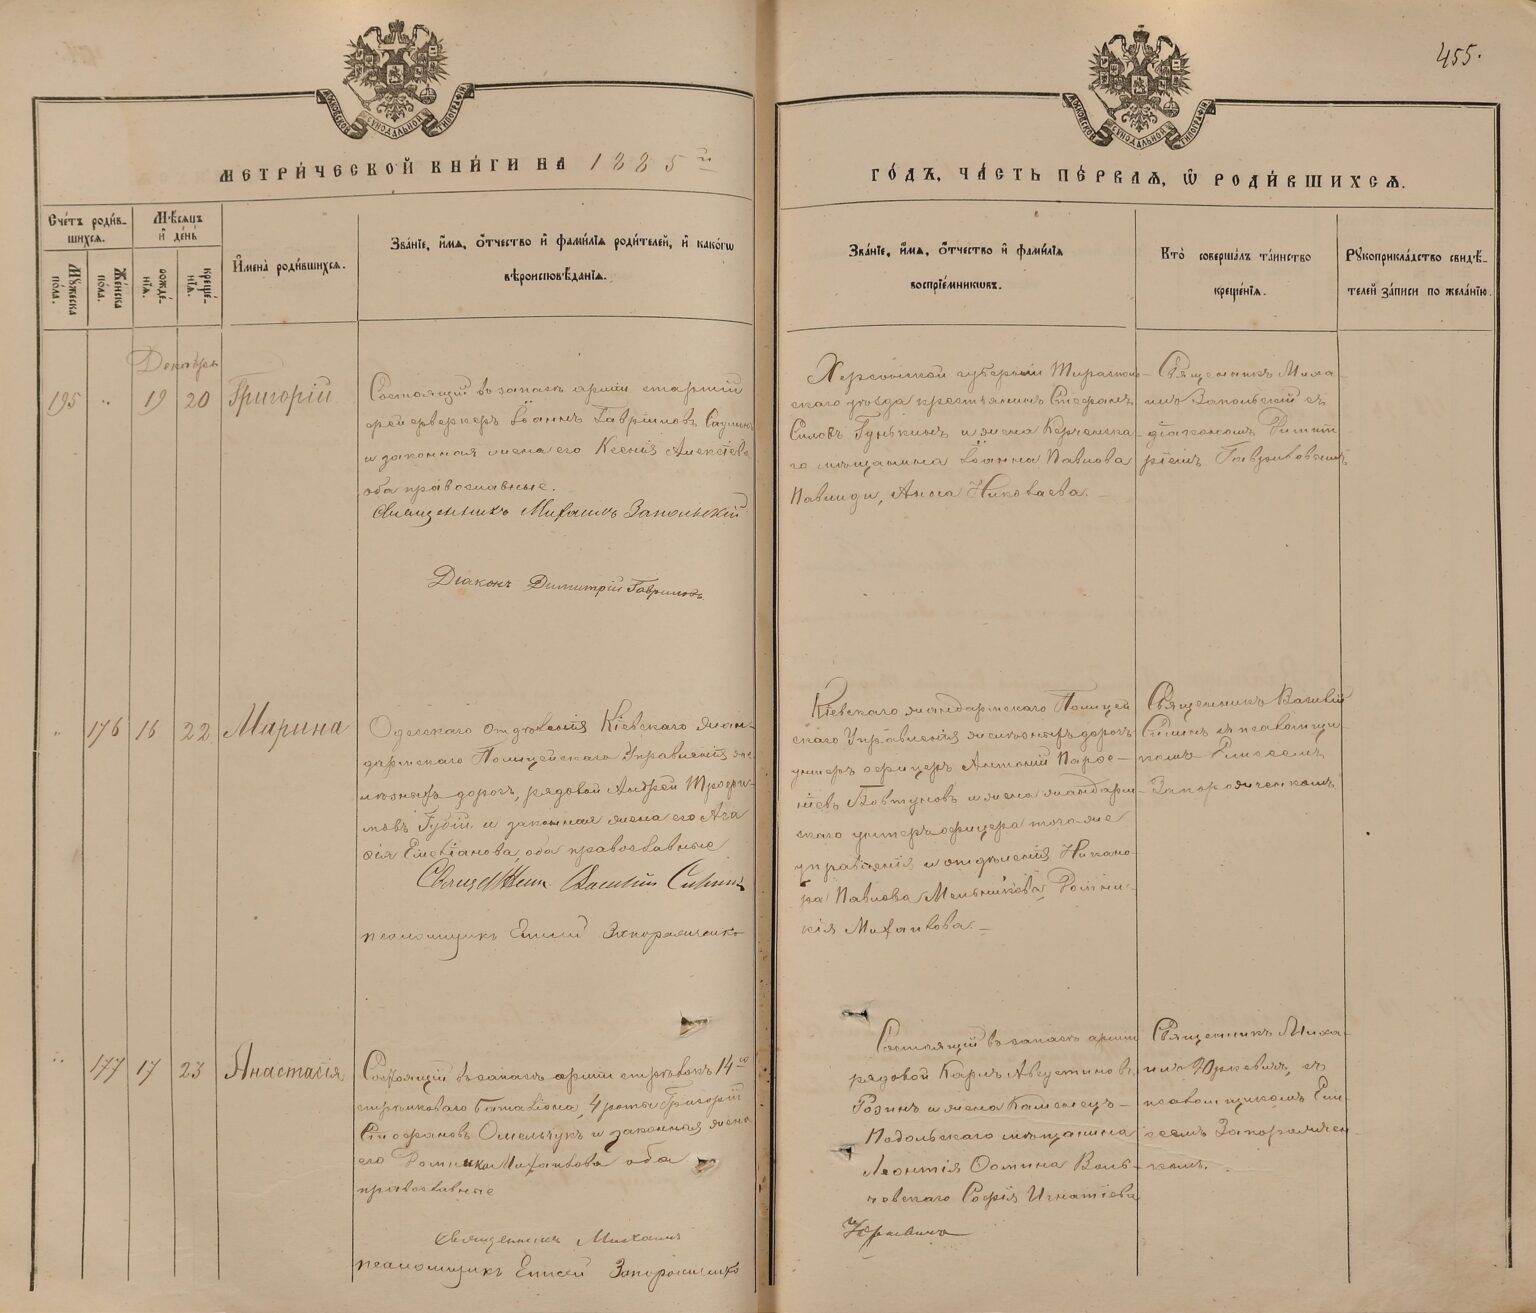 455.
МОСКОВСКОЙ СѴНОДАЛЬНОЙ ТИПОГРАФІИ
МОСКОВСКОЙ СѴНОДАЛЬНОЙ ТИПОГРАФІИ
МЕТРИ́ЧЕСКОЙ КНИ́ГИ НА 1885 й
ГО́ДЪ, ЧА́СТЬ ПЕ́РВАѦ, Ѽ РОДИ́ВШИХСѦ.
Сче́тъ роди́в-
шихся.
Мѣ́сяцъ
и҆ де́нь
Мꙋжеска
по́ла.
Же́нска
по́ла.
рожде́-
нїѧ.
креще́-
нїѧ.
И҆мена̀ роди́вшихся.
Зва́нїе, и҆́мѧ, ѻ҆́тчество и҆ фами́лїѧ роди́телей, и҆ како́гѡ
вѣроисповѣ́данїѧ.
Зва́нїе, и҆́мѧ, ѻ҆́тчество и҆ фами́лїѧ
воспрїе́мникѡвъ.
Кто̀ соверша́лъ та́инство
креще́нїѧ.
Рꙋкоприкла́дство свидѣ́-
телей за́писи по жела́нїю.
Декабрь
195 " 19 20 Григорій
Состоящій въ запасѣ арміи старшій
фейерверкеръ Іоаннъ Гавріиловъ
и законная жена его Ксенія Алексѣева
оба православные.
Священникъ Михаилъ Запольскій
Діаконъ Димитрій
Херсонской губерніи Тираспол-
скаго уѣзда крестьянинъ Стефанъ
и жена Керченска-
го мѣщанина Іоанна Павлова
Анна Николаева.
Священникъ Миха-
илъ Запольскій съ
діакономъ Димит-
ріемъ
" 176 16 22 Марина
Одесскаго отдѣленія Кіевскаго жан-
дармскаго Полицейскаго Управленія же-
лѣзныхъ дорогъ, рядовой Андрей Трофи-
мовъ Губій и законная жена его Ага
фія Емеліанова, оба православные
Василій
псаломщикъ Елисей
Кіевскаго жандармскаго Полицей
скаго Управленія желѣзныхъ дорогъ
унтеръ офицеръ Антоній Парѳе-
ніевъ Бовтуновъ и жена жандарм
скаго унтеръ офицера того же
управленія и отдѣленія Никано-
ра Павлова Мельникова, Домни-
кія Михайлова.
Священникъ Василій
съ псаломщи-
комъ Елисеемъ
Запорожченкомъ
" 177 17 23 Анастасія
Состоящій въ запасѣ арміи стрѣлокъ 14го
стрѣлковаго баталіона, 4 роты Григорій
Стефановъ Омельчукъ и законная жена
его Михайлова оба
православные
Священникъ Михаилъ
псаломщикъ Елисей
Состоящій въ запасѣ арміи
рядовой Карпъ Августиновъ
и жена Каменецъ-
Подольскаго мѣщанина
Леонтія Ѳомина Воль-
новскаго Софія Игнатіева
Юркевичъ
Священникъ Миха-
илъ Юркевичъ, съ
псаломщикомъ Ели-
сеемъ Запорожчен-
комъ.